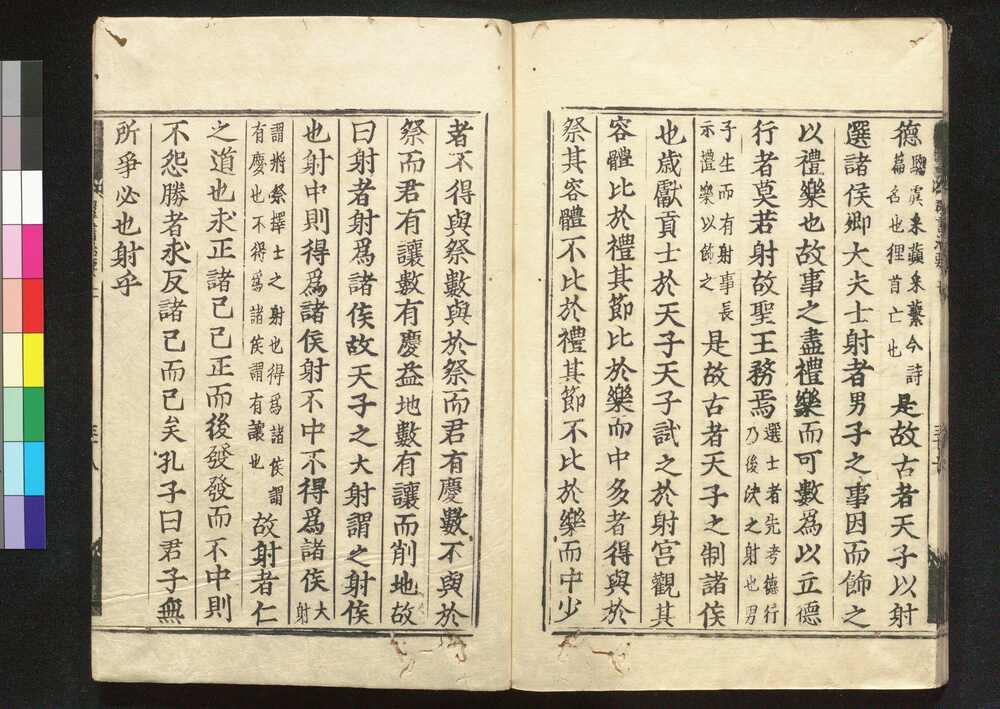 德騶虞采蘋采蘩今詩篇名也狸首亡也是故古者天子以射
選諸侯卿大夫士射者男子之事因而飾之
以禮樂也故事之盡禮樂而可數為以立德
行者莫若射故聖王務焉選士者先考德行乃後決之射也男
子生而有射事長示禮樂以飾之是故古者天子之制諸侯
也歲獻貢士於天子天子試之於射宮觀其
容體比於禮其節比於樂而中多者得與於
祭其容體不比於禮其節不比於樂而中少
者不得與祭數與於祭而君有慶數不與於
祭而君有讓數有慶益地數有讓而削地故
曰射者射爲諸侯故天子之大射謂之射侯
也射中則得爲諸侯射不中不得爲諸侯大射
謂將祭擇士之射也得爲諸侯謂有慶也不得爲諸侯謂有讓也故射者仁
之道也求正諸己己正而後發發而不中則
不怨勝者求反諸己而已矣孔子曰君子無
所爭必也射乎